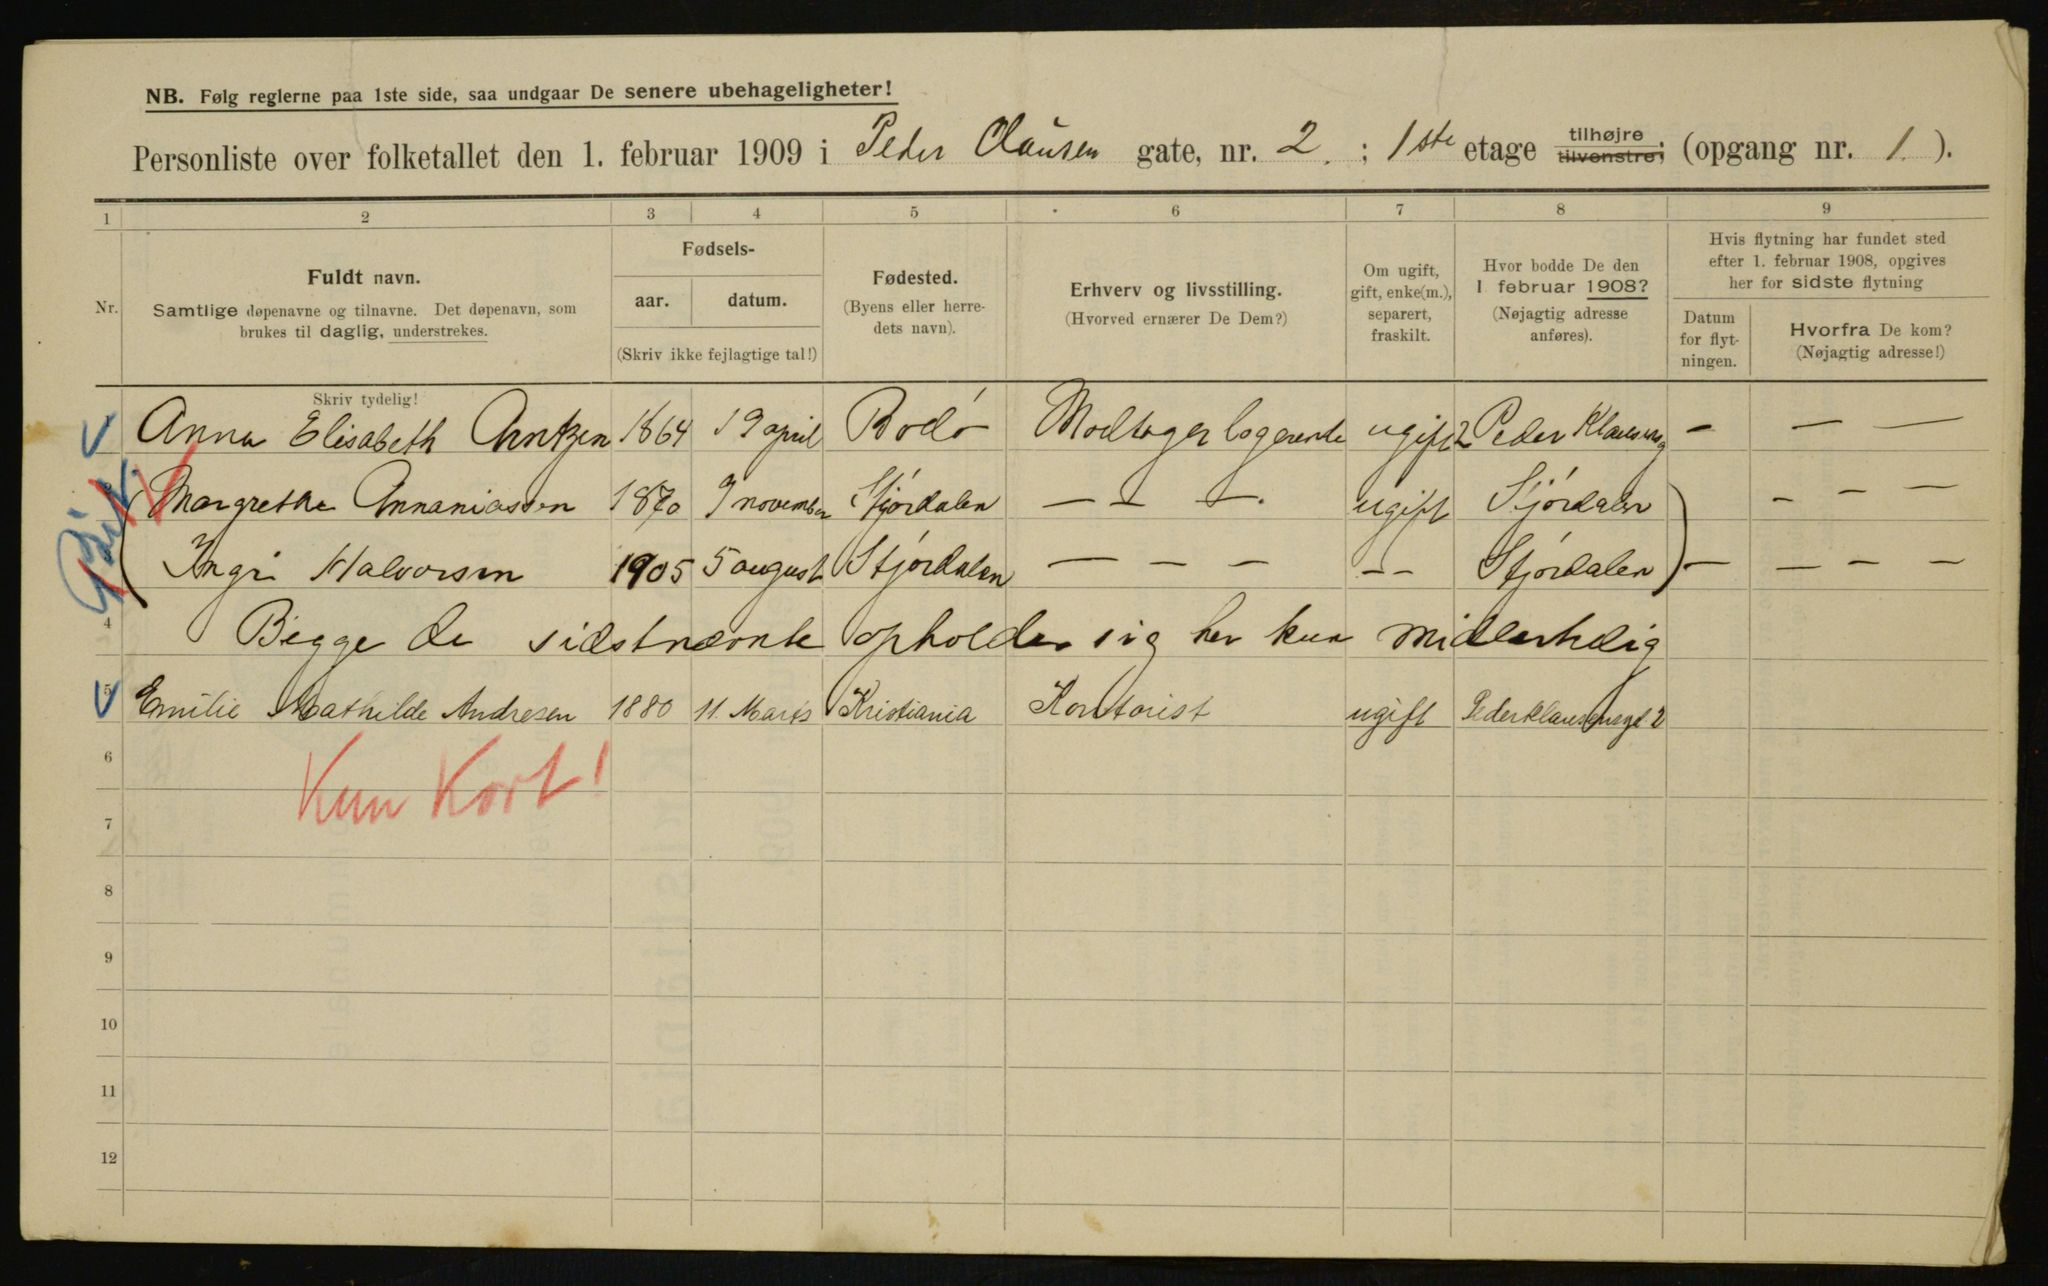 NB. Følg reglerne paa 1ste side, saa undgaar De senere ubehageligheter!
Personliste over folketallet den 1. februar 1909 i Peder Clausen gate, nr. 2. ; 1ste etage tilhøjre tilvenstre; (opgang nr. 1.).
1 2 3 4 5 6 7 8 9
Nr.
Fuldt navn.
Samtlige døpenavne og tilnavne. Det døpenavn, som
brukes til daglig, understrekes.
Fødsels-
aar. datum.
(Skriv ikke fejlagtige tal!)
Fødested.
(Byens eller herre-
dets navn).
Erhverv og livsstilling.
(Hvorved ernærer De Dem?)
Om ugift,
gift, enke(m.),
separert,
fraskilt.
Hvor bodde De den
1. februar 1908?
(Nøjagtig adresse
anføres).
Hvis flytning har fundet sted
efter 1. februar 1908, opgives
her for sidste flytning
Datum
for flyt-
ningen.
Hvorfra De kom?
(Nøjagtig adresse!)
Skriv tydelig!
Anna Elisabeth Arntzen 1864 19 april Bodó Modtager logerende ugift 2 Peder Klausensg – – –
Margrethe Annaniassen 1870 9 november Stjórdalen – – – ugift Stjórdalen – – –
Ingri Halvorsen 1905 5 august Stjórdalen – – – – – Stjórdalen – – – –
4 Begge de sidstnævnte opholder sig her kun midlertidig
5 Emilie Mathilde Andresen 1880 11. Marts Kristiania Kontorist ugift Peder Klausensgt 2
6
Kun Kort!
7
8
9
10
11
12